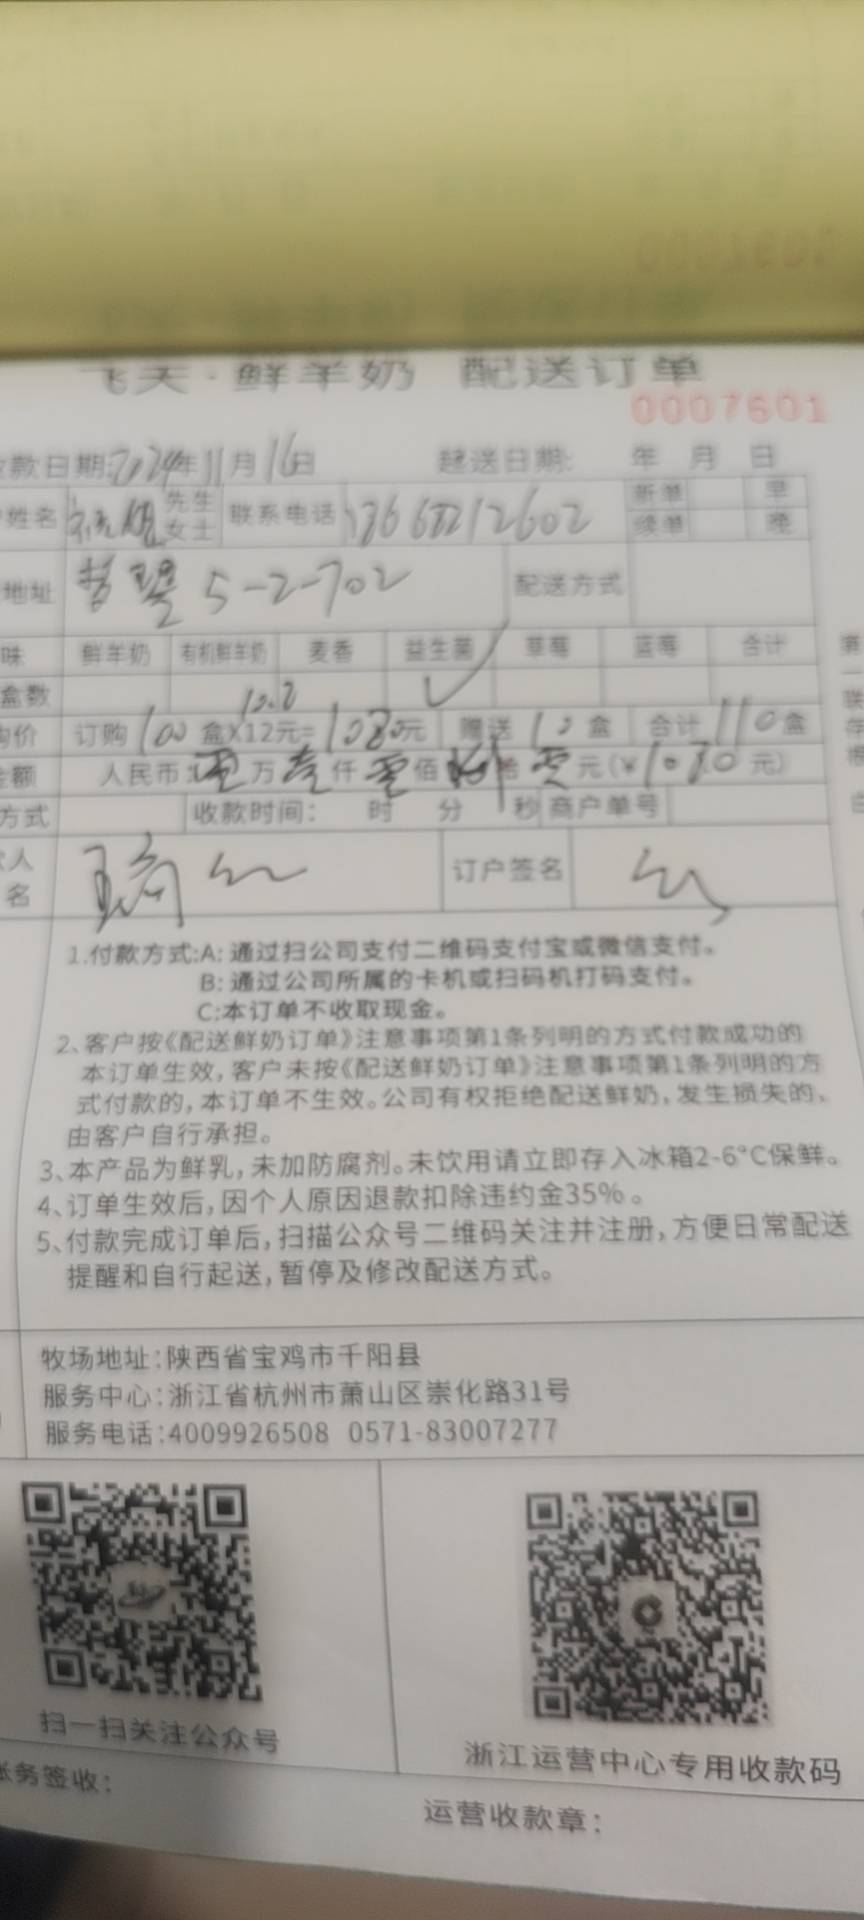 飞天·鲜羊奶 配送订单
0007601
款日期:2024年11月16日 起送日期: 年 月 日
姓名 先生 女士 联系电话 新单 早
续单 晚
地址 5-2-702 配送方式
味 鲜羊奶 有机鲜羊奶 麦香 益生菌 草莓 蓝莓 合计
盒数 ✓
购价 订购100盒X12元=1080元 赠送10盒 合计110盒
金额 人民币: 零万壹仟零佰捌拾零元(¥1080元)
方式 收款时间: 时 分 秒 商户单号
款人 名 订户签名
1.付款方式:A:通过扫公司支付二维码支付宝或微信支付。
B:通过公司所属的卡机或扫码机打码支付。
C:本订单不收取现金。
2、客户按《配送鲜奶订单》注意事项第1条列明的方式付款成功的
本订单生效,客户未按《配送鲜奶订单》注意事项第1条列明的方
式付款的,本订单不生效。公司有权拒绝配送鲜奶,发生损失的,
由客户自行承担。
3、本产品为鲜乳,未加防腐剂。未饮用请立即存入冰箱2-6°C保鲜。
4、订单生效后,因个人原因退款扣除违约金35%。
5、付款完成订单后,扫描公众号二维码关注并注册,方便日常配送
提醒和自行起送,暂停及修改配送方式。
牧场地址:陕西省宝鸡市千阳县
服务中心:浙江省杭州市萧山区崇化路31号
服务电话:4009926508 0571-83007277
扫一扫关注公众号
浙江运营中心专用收款码
账务签收:
运营收款章: